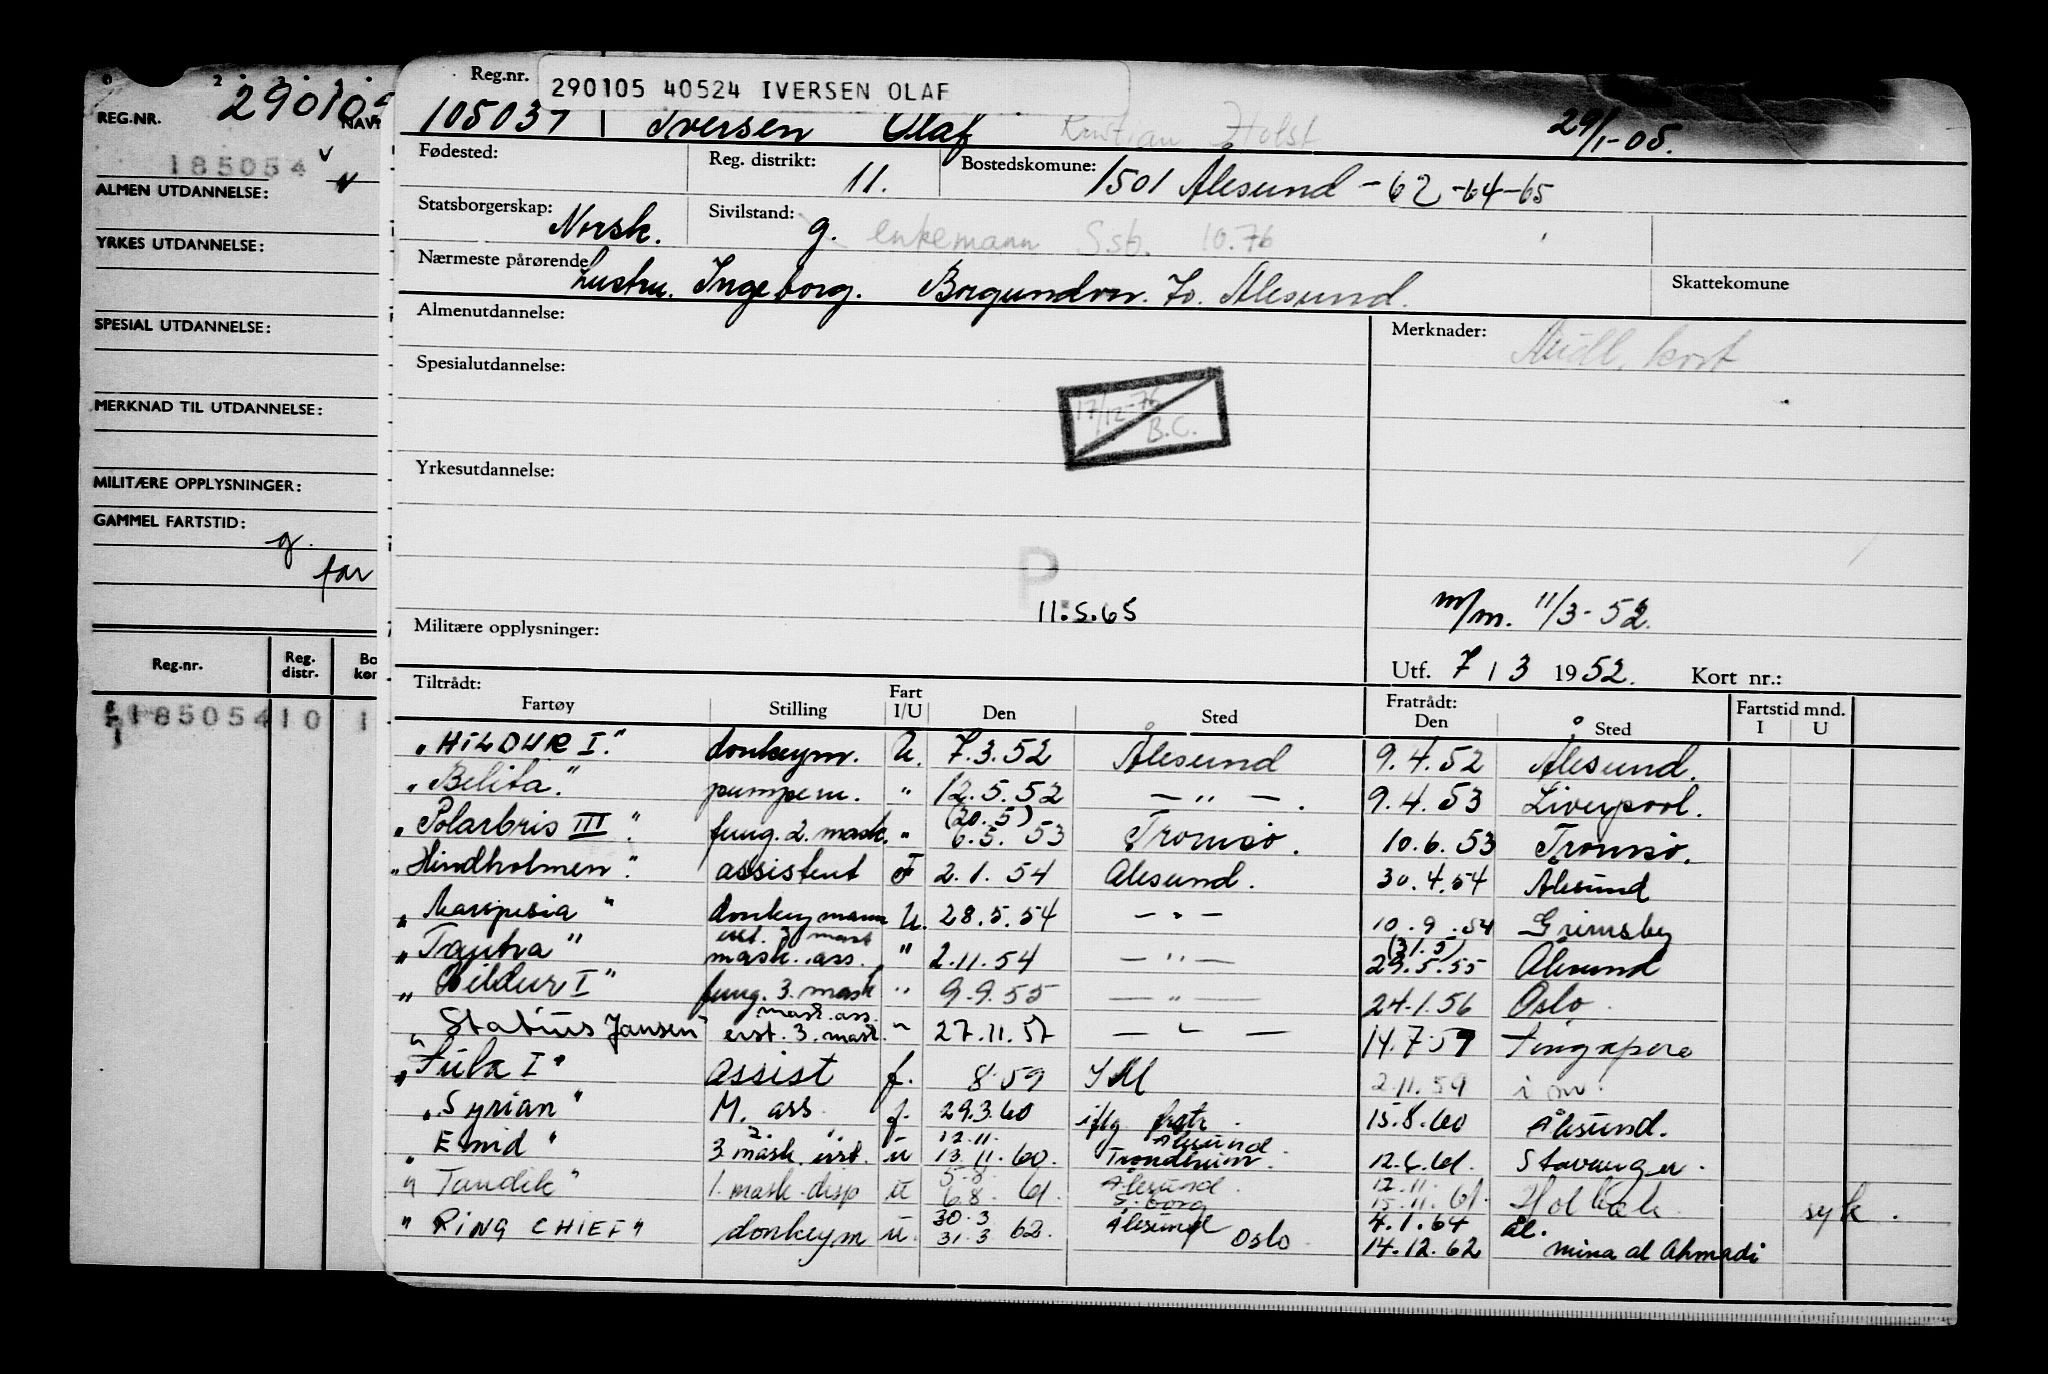 REG.NR. 29010
NAVN
185054
ALMEN UTDANNELSE:
YRKES UTDANNELSE:
SPESIAL UTDANNELSE:
MERKNAD TIL UTDANNELSE:
MILITÆRE OPPLYSNINGER:
GAMMEL FARTSTID:
g.
far
Reg.nr. Reg. distr. Bo kor
185054 10 1
Reg.nr. 290105 40524 IVERSEN OLAF
105037 Iversen Olaf Kristian Holst 29/1-05.
Fødested: Reg. distrikt: 11. Bostedskomune: 1501 Ålesund -62-64-65
Statsborgerskap: Norsk. Sivilstand: g. enkemann S.st. 10.76
Nærmeste pårørende Hustru. Ingeborg. Borgundvn. 70. Ålesund. Skattekomune
Almenutdannelse: Merknader:
kort
Spesialutdannelse:
17/12-76 B.C.
Yrkesutdannelse:
P.
11.5.65
m/m. 11/3-52.
Militære opplysninger:
Utf. 7 / 3 1952. Kort nr.:
Tiltrådt: Fratrådt: Fartstid mnd.
Fartøy Stilling Fart I/U Den Sted Den Sted I U
"HILDUR I." donkeym. U. 7.3.52 Ålesund 9.4.52 Ålesund.
"Belita." pumpem. " 12.5.52 — " —. 9.4.53 Liverpool.
"Polarbris III". fung. 2. mask. " (20.5) 6.5.53 Tromsø. 10.6.53 Tromsø.
"Hindholmen". assistent F 2.1.54 Ålesund. 30.4.54 Ålesund
"Marpesia" donkeymann U. 28.5.54 — " — 10.9.54 Grimsby
"Tautra" erst. 3 mask mask. ass. " 2.11.54 — " — (31.5) 29.5.55 Ålesund
"Hildur I" fung. 3. mask " 9.9.55 — " — 24.1.56 Oslo.
"Statius Jansen" mask. ass. erst. 3. mask. " 27.11.57 — " — 14.7.59 Singapore
"Sula I" assist f. 8.59 IM 2.11.59 i m.
"Syrian" M. ass f. 29.3.60 iflg 15.8.60 Ålesund.
"Emid" 2. 3 mask. erst. u 12.11. 13.11.60. Ålesund Trondheim. 12.6.61. Stavanger.
"Tandik" 1. mask. disp u 5.8. 6.8.61 Ålesund. S.borg 12.11. 15.11.61. Holbæk. syk.
"RING CHIEF" donkeym u. 30.3 31.3 62. Ålesund Oslo. 4.1.64 Ål.
14.12.62 mina al Ahmadi